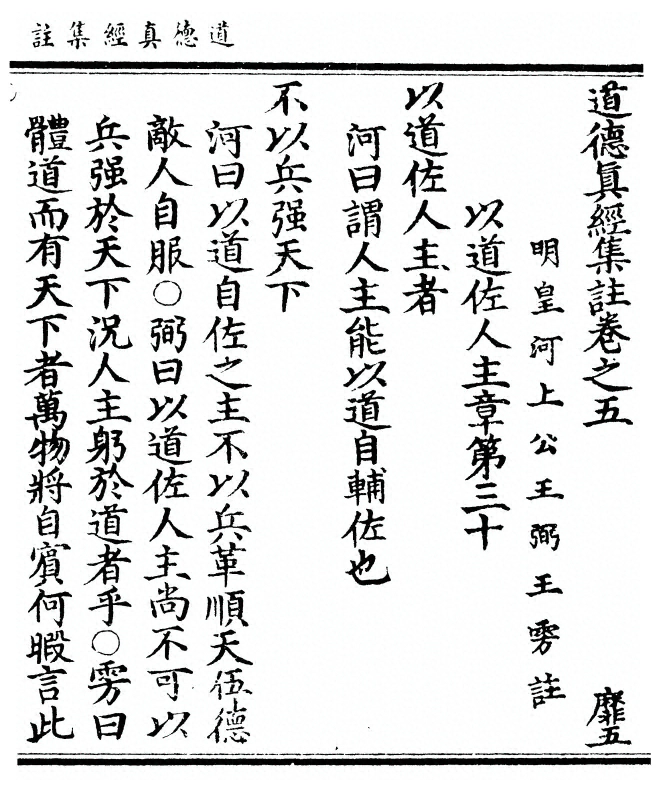 道德真經集註
道德真經集註卷之五 靡五
明皇河上公王弼王雱註
以道佐人主章第三十
以道佐人主者
河曰謂人主能以道自輔佐也
不以兵强天下
河曰以道自佐之主不以兵革順天伍德
敵人自服〇弼曰以道佐人主尚不可以
兵强於天下況人主躬於道者乎〇雱曰
體道而有天下者萬物將自賓何暇言此